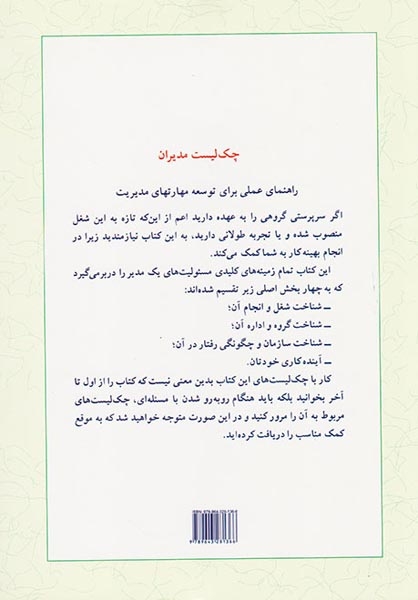 چک‌لیست مدیران
راهنمای عملی برای توسعه مهارتهای مدیریت
اگر سرپرستی گروهی را به عهده دارید اعم از این‌که تازه به این شغل
منصوب شده و یا تجربه طولانی دارید، به این کتاب نیازمندید زیرا در
انجام بهینه‌کار به شما کمک می‌کند.
این کتاب تمام زمینه‌های کلیدی مسئولیت‌های یک مدیر را دربرمی‌گیرد
که به چهار بخش اصلی زیر تقسیم شده‌اند:
ــ شناخت شغل و انجام آن؛
ــ شناخت گروه و اداره آن؛
ــ شناخت سازمان و چگونگی رفتار در آن؛
ــ آینده‌کاری خودتان.
کار با چک‌لیست‌های این کتاب بدین معنی نیست که کتاب را از اول تا
آخر بخوانید بلکه باید هنگام روبه‌رو شدن با مسئله‌ای، چک‌لیست‌های
مربوط به آن را مرور کنید و در این صورت متوجه خواهید شد که به موقع
کمک مناسب را دریافت کرده‌اید.